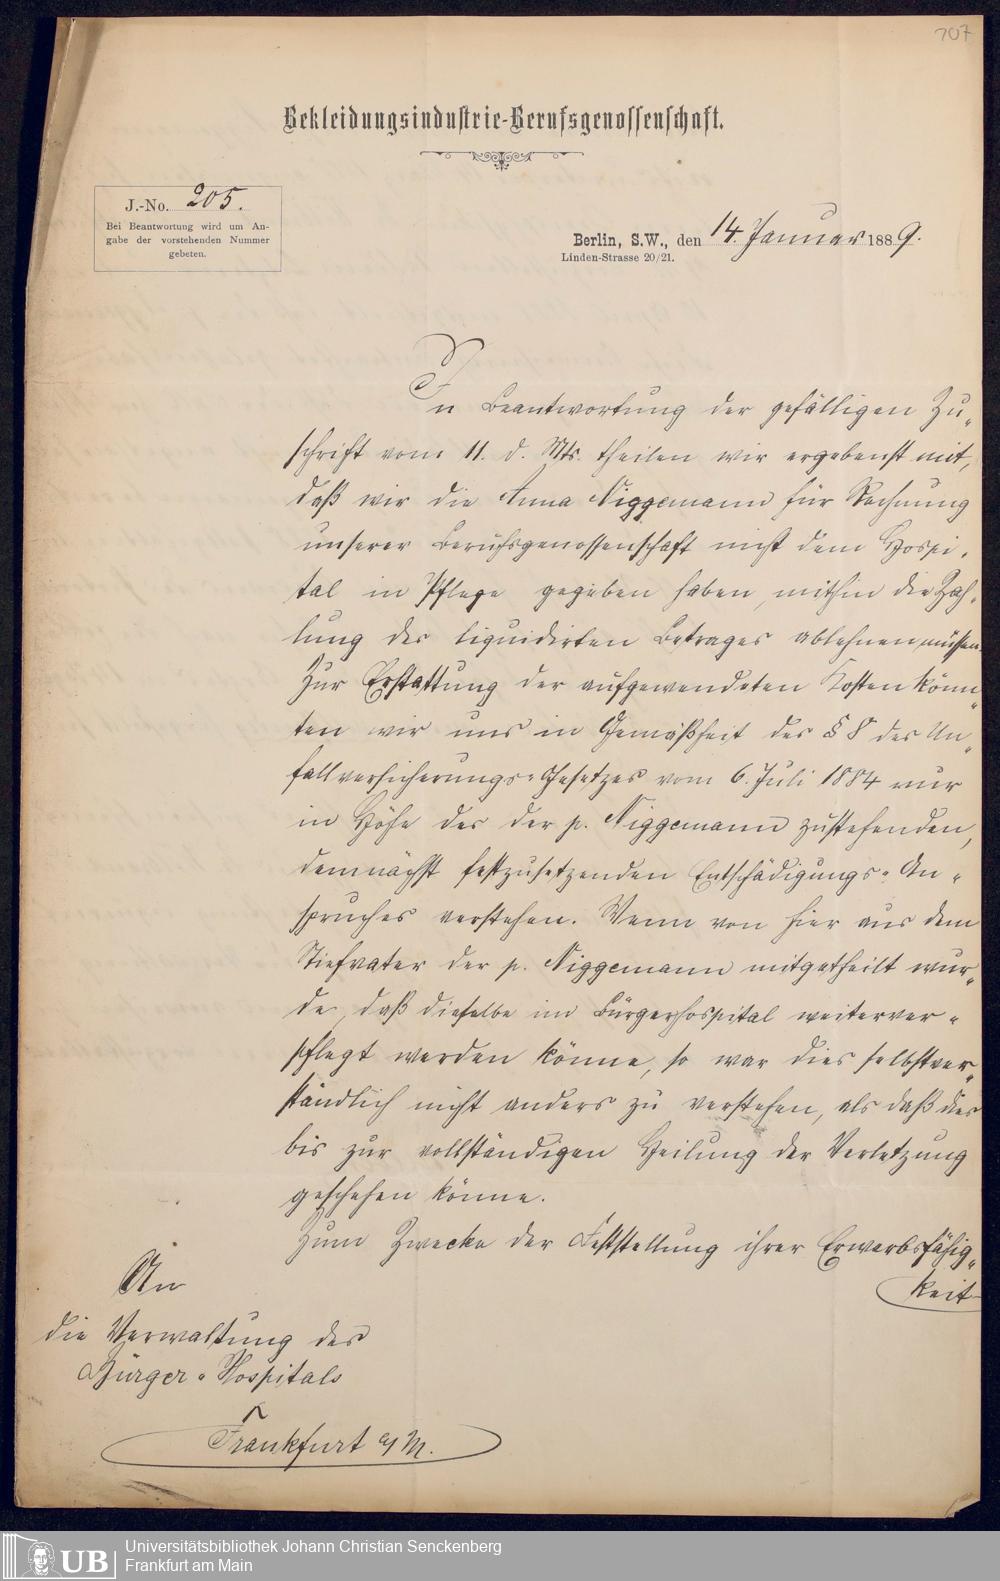 707
Bekleidungsindustrie-Berufsgenossenschaft.
J.-No. 205.
Bei Beantwortung wird um An-
gabe der vorstehenden Nummer
gebeten.
Berlin, S.W., den 14. Januar 1889.
Linden-Strasse 20/21.
In Beantwortung der gefälligen Zu-
schrift vom 11. d. Mts. theilen wir ergebenst mit,
daß wir die Anna Niggemann für Rechnung
unserer Berufsgenossenschaft nicht dem Hospi-
tal in Pflege gegeben haben, mithin die Zah-
lung des liquidirten Betrages ablehnen müssen.
Zur Erstattung der aufgewendeten Kosten könn-
ten wir uns in Gemäßheit des § 8 des Un-
fallversicherungs-Gesetzes vom 6. Juli 1884 nur
in Höhe des der p. Niggemann zustehenden,
demnächst festzusetzenden Entschädigungs-An-
spruches verstehen. Wenn von hier aus dem
Stiefvater der p. Niggemann mitgetheilt wur-
de, daß dieselbe im Bürgerhospital weiterver-
pflegt werden könne, so war dies selbstver-
ständlich nicht anders zu verstehen, als daß dies
bis zur vollständigen Heilung der Verletzung
geschehen könne.
Zum Zwecke der Feststellung ihrer Erwerbsfähig-
keit
An
die Verwaltung des
Bürger-Hospitals
Frankfurt a/M.
UB
Universitätsbibliothek Johann Christian Senckenberg
Frankfurt am Main